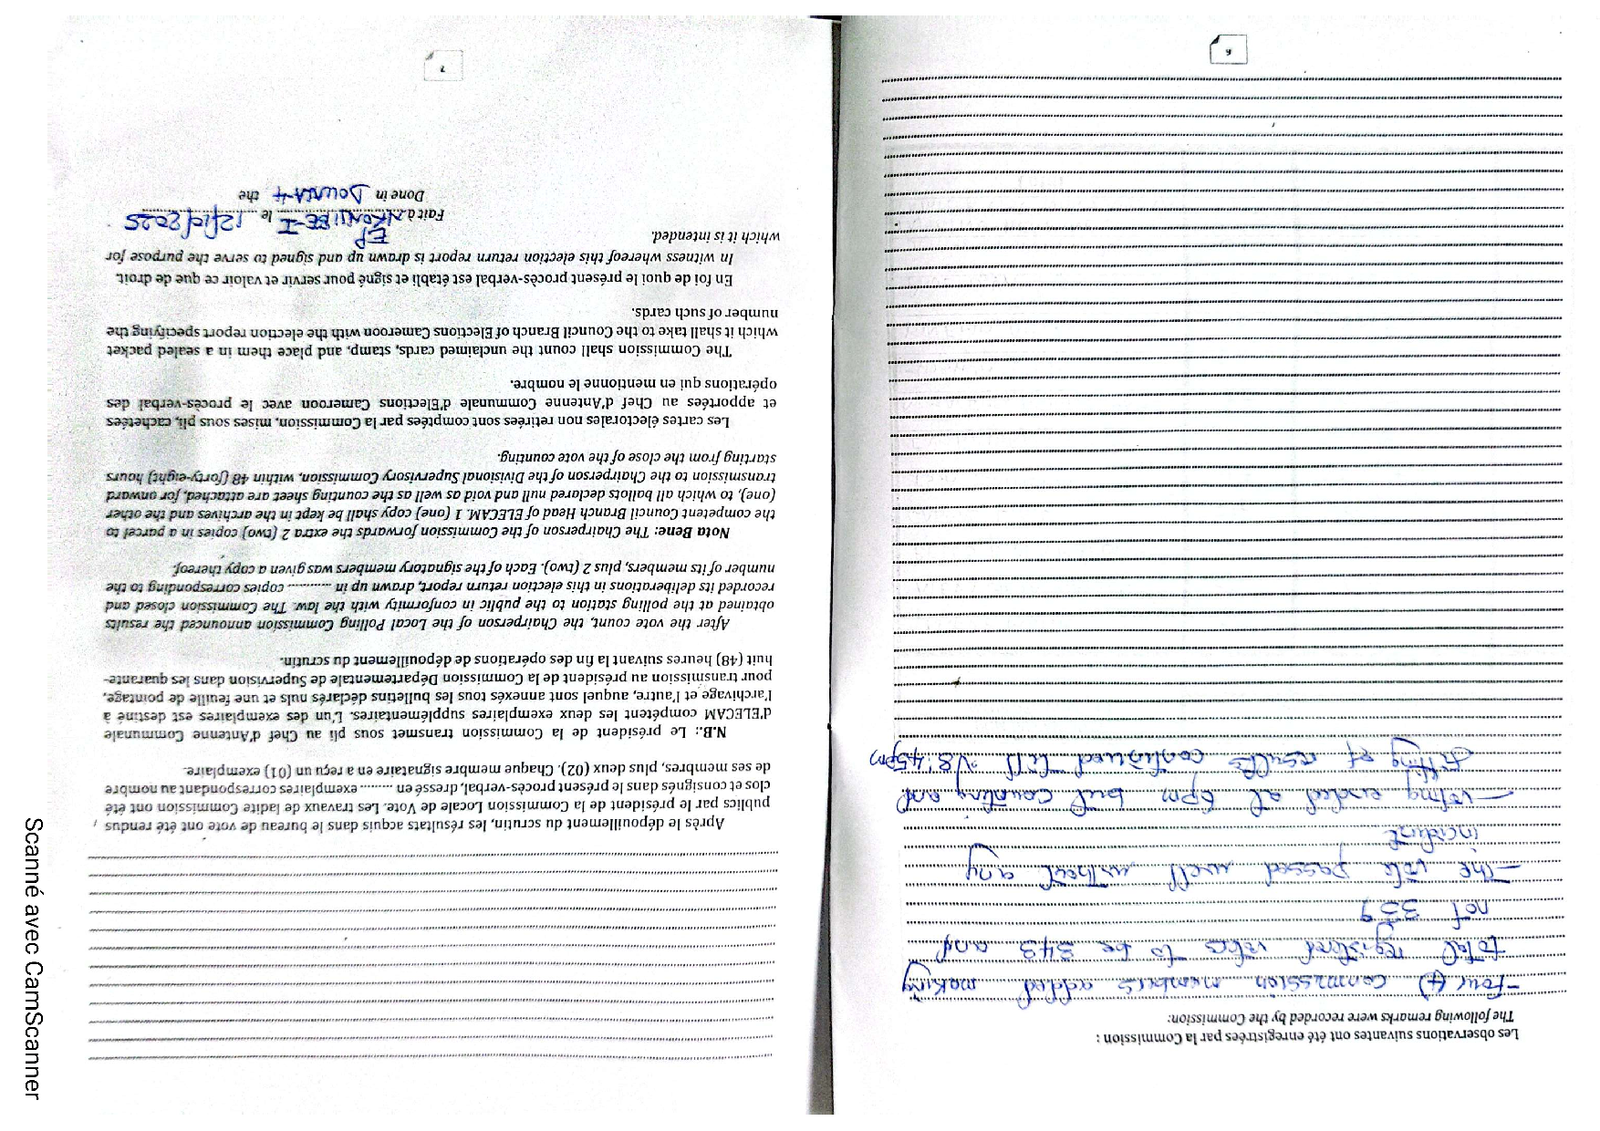 Les observations suivantes ont été enregistrées par la Commission :
The following remarks were recorded by the Commission:
- Four (4) commission members added making
total registered voters to be 343 and
not 339
- The vote passed well without any
incident
- voting ended at 6pm but counting and
of results continued till 8:45pm
6
Après le dépouillement du scrutin, les résultats acquis dans le bureau de vote ont été rendus
publics par le président de la Commission Locale de Vote. Les travaux de ladite Commission ont été
clos et consignés dans le présent procès-verbal, dressé en ......... exemplaires correspondant au nombre
de ses membres, plus deux (02). Chaque membre signataire en a reçu un (01) exemplaire.
N.B.: Le président de la Commission transmet sous pli au Chef d'Antenne Communale
d'ELECAM compétent les deux exemplaires supplémentaires. L'un des exemplaires est destiné à
l'archivage et l'autre, auquel sont annexés tous les bulletins déclarés nuls et une feuille de pointage,
pour transmission au président de la Commission Départementale de Supervision dans les quarante-
huit (48) heures suivant la fin des opérations de dépouillement du scrutin.
After the vote count, the Chairperson of the Local Polling Commission announced the results
obtained at the polling station to the public in conformity with the law. The Commission closed and
recorded its deliberations in this election return report, drawn up in ............ copies corresponding to the
number of its members, plus 2 (two). Each of the signatory members was given a copy thereof.
Nota Bene: The Chairperson of the Commission forwards the extra 2 (two) copies in a parcel to
the competent Council Branch Head of ELECAM. 1 (one) copy shall be kept in the archives and the other
(one), to which all ballots declared null and void as well as the counting sheet are attached, for onward
transmission to the Chairperson of the Divisional Supervisory Commission, within 48 (forty-eight) hours
starting from the close of the vote counting.
Les cartes électorales non retirées sont comptées par la Commission, mises sous pli, cachetées
et apportées au Chef d'Antenne Communale d'Elections Cameroon avec le procès-verbal des
opérations qui en mentionne le nombre.
The Commission shall count the unclaimed cards, stamp, and place them in a sealed packet
which it shall take to the Council Branch of Elections Cameroon with the election report specifying the
number of such cards.
En foi de quoi le présent procès-verbal est établi et signé pour servir et valoir ce que de droit.
In witness whereof this election return report is drawn up and signed to serve the purpose for
which it is intended.
EP
Fait à NKONJIBE-I le 12/10/2025
Done in DOUALA 4 the
7
Scanné avec CamScanner